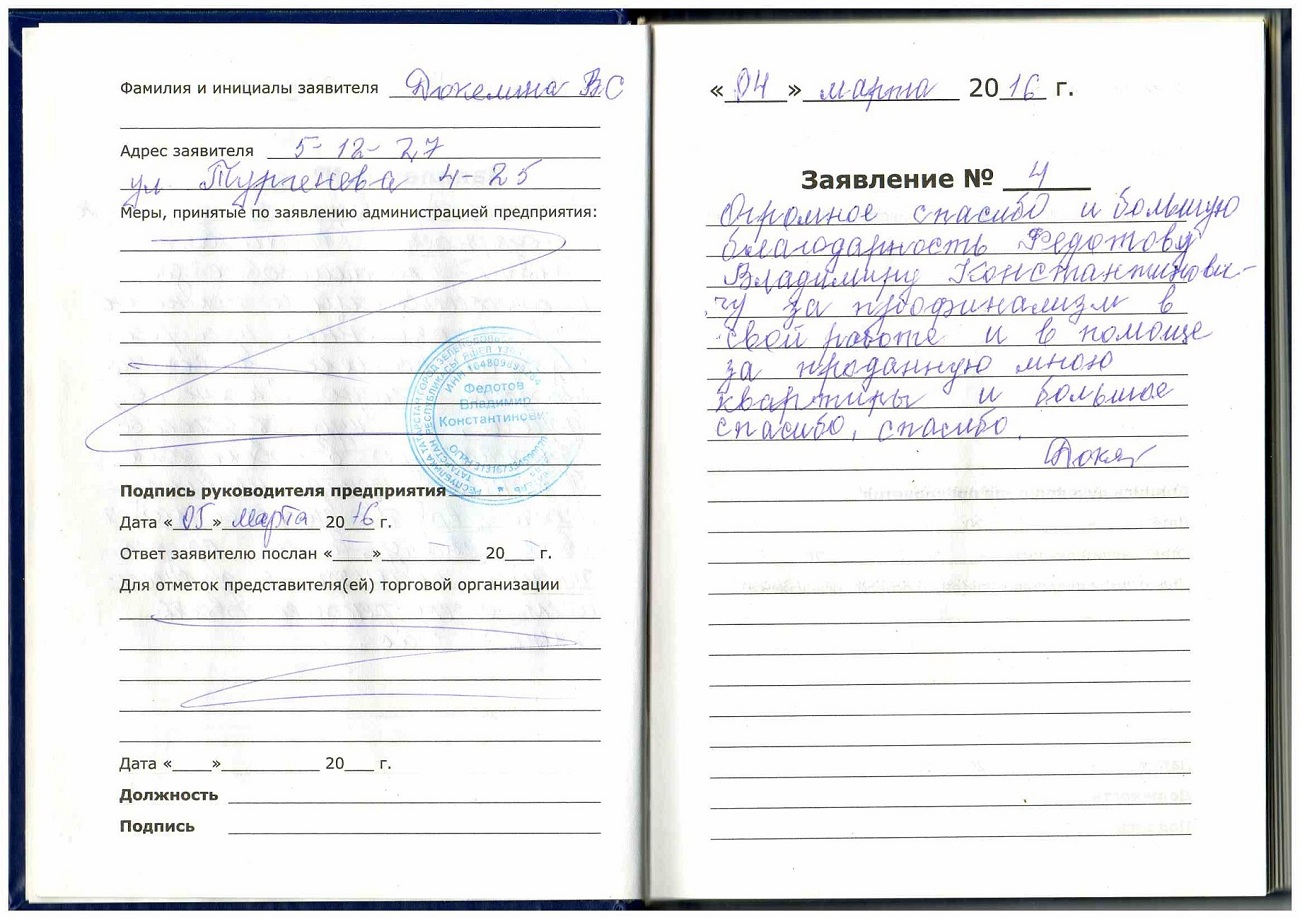 Фамилия и инициалы заявителя Докелина ВС
Адрес заявителя 5-12-27
ул Тургенева 4-25
Меры, принятые по заявлению администрацией предприятия:
Федотов
Владимир
Константинович
Подпись руководителя предприятия
Дата «05» марта 2016 г.
Ответ заявителю послан «___» ___ 20___ г.
Для отметок представителя(ей) торговой организации
Дата «___» ___ 20___ г.
Должность
Подпись
«04» марта 2016 г.
Заявление № 4
Огромное спасибо и большую
благодарность Федотову
Владимиру Константинови-
чу за профинализм в
свой работе и в помоще
за проданную мною
квартиры и большое
спасибо, спасибо.